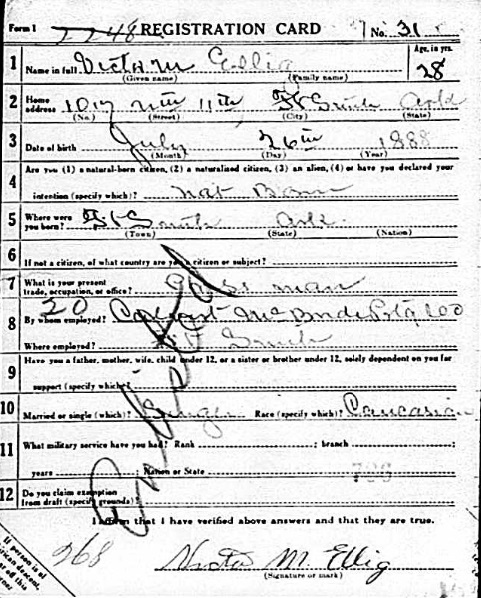 Form 1 2248 REGISTRATION CARD No. 31
1 Name in full Victor M Ellig Age, in yrs. 28
(Given name) (Family name)
2 Home address 1017 Nth 11th Ft Smith Ark
(No.) (Street) (City) (State)
3 Date of birth July 26th 1888
(Month) (Day) (Year)
4 Are you (1) a natural-born citizen, (2) a naturalized citizen, (3) an alien, (4) or have you declared your
intention (specify which)? Nat Born
5 Where were you born? Ft Smith Ark.
(Town) (State) (Nation)
6 If not a citizen, of what country are you a citizen or subject?
7 What is your present trade, occupation, or office? man
20
8 By whom employed? Calvert McBride Ptg Co
Where employed? Ft Smith
9 Have you a father, mother, wife, child under 12, or a sister or brother under 12, solely dependent on you for
support (specify which)?
10 Married or single (which)? Single Race (specify which)? Caucasian
11 What military service have you had? Rank ; branch ;
years ; Nation or State
12 Do you claim exemption from draft (specify grounds)?
I affirm that I have verified above answers and that they are true.
268 Victor M. Ellig
(Signature or mark)
If person is of